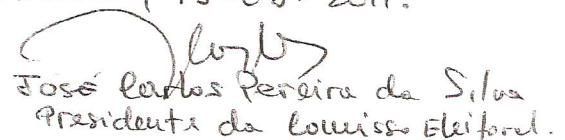 2011.
José Carlos Pereira da Silva
Presidente da Comissão Eleitoral.